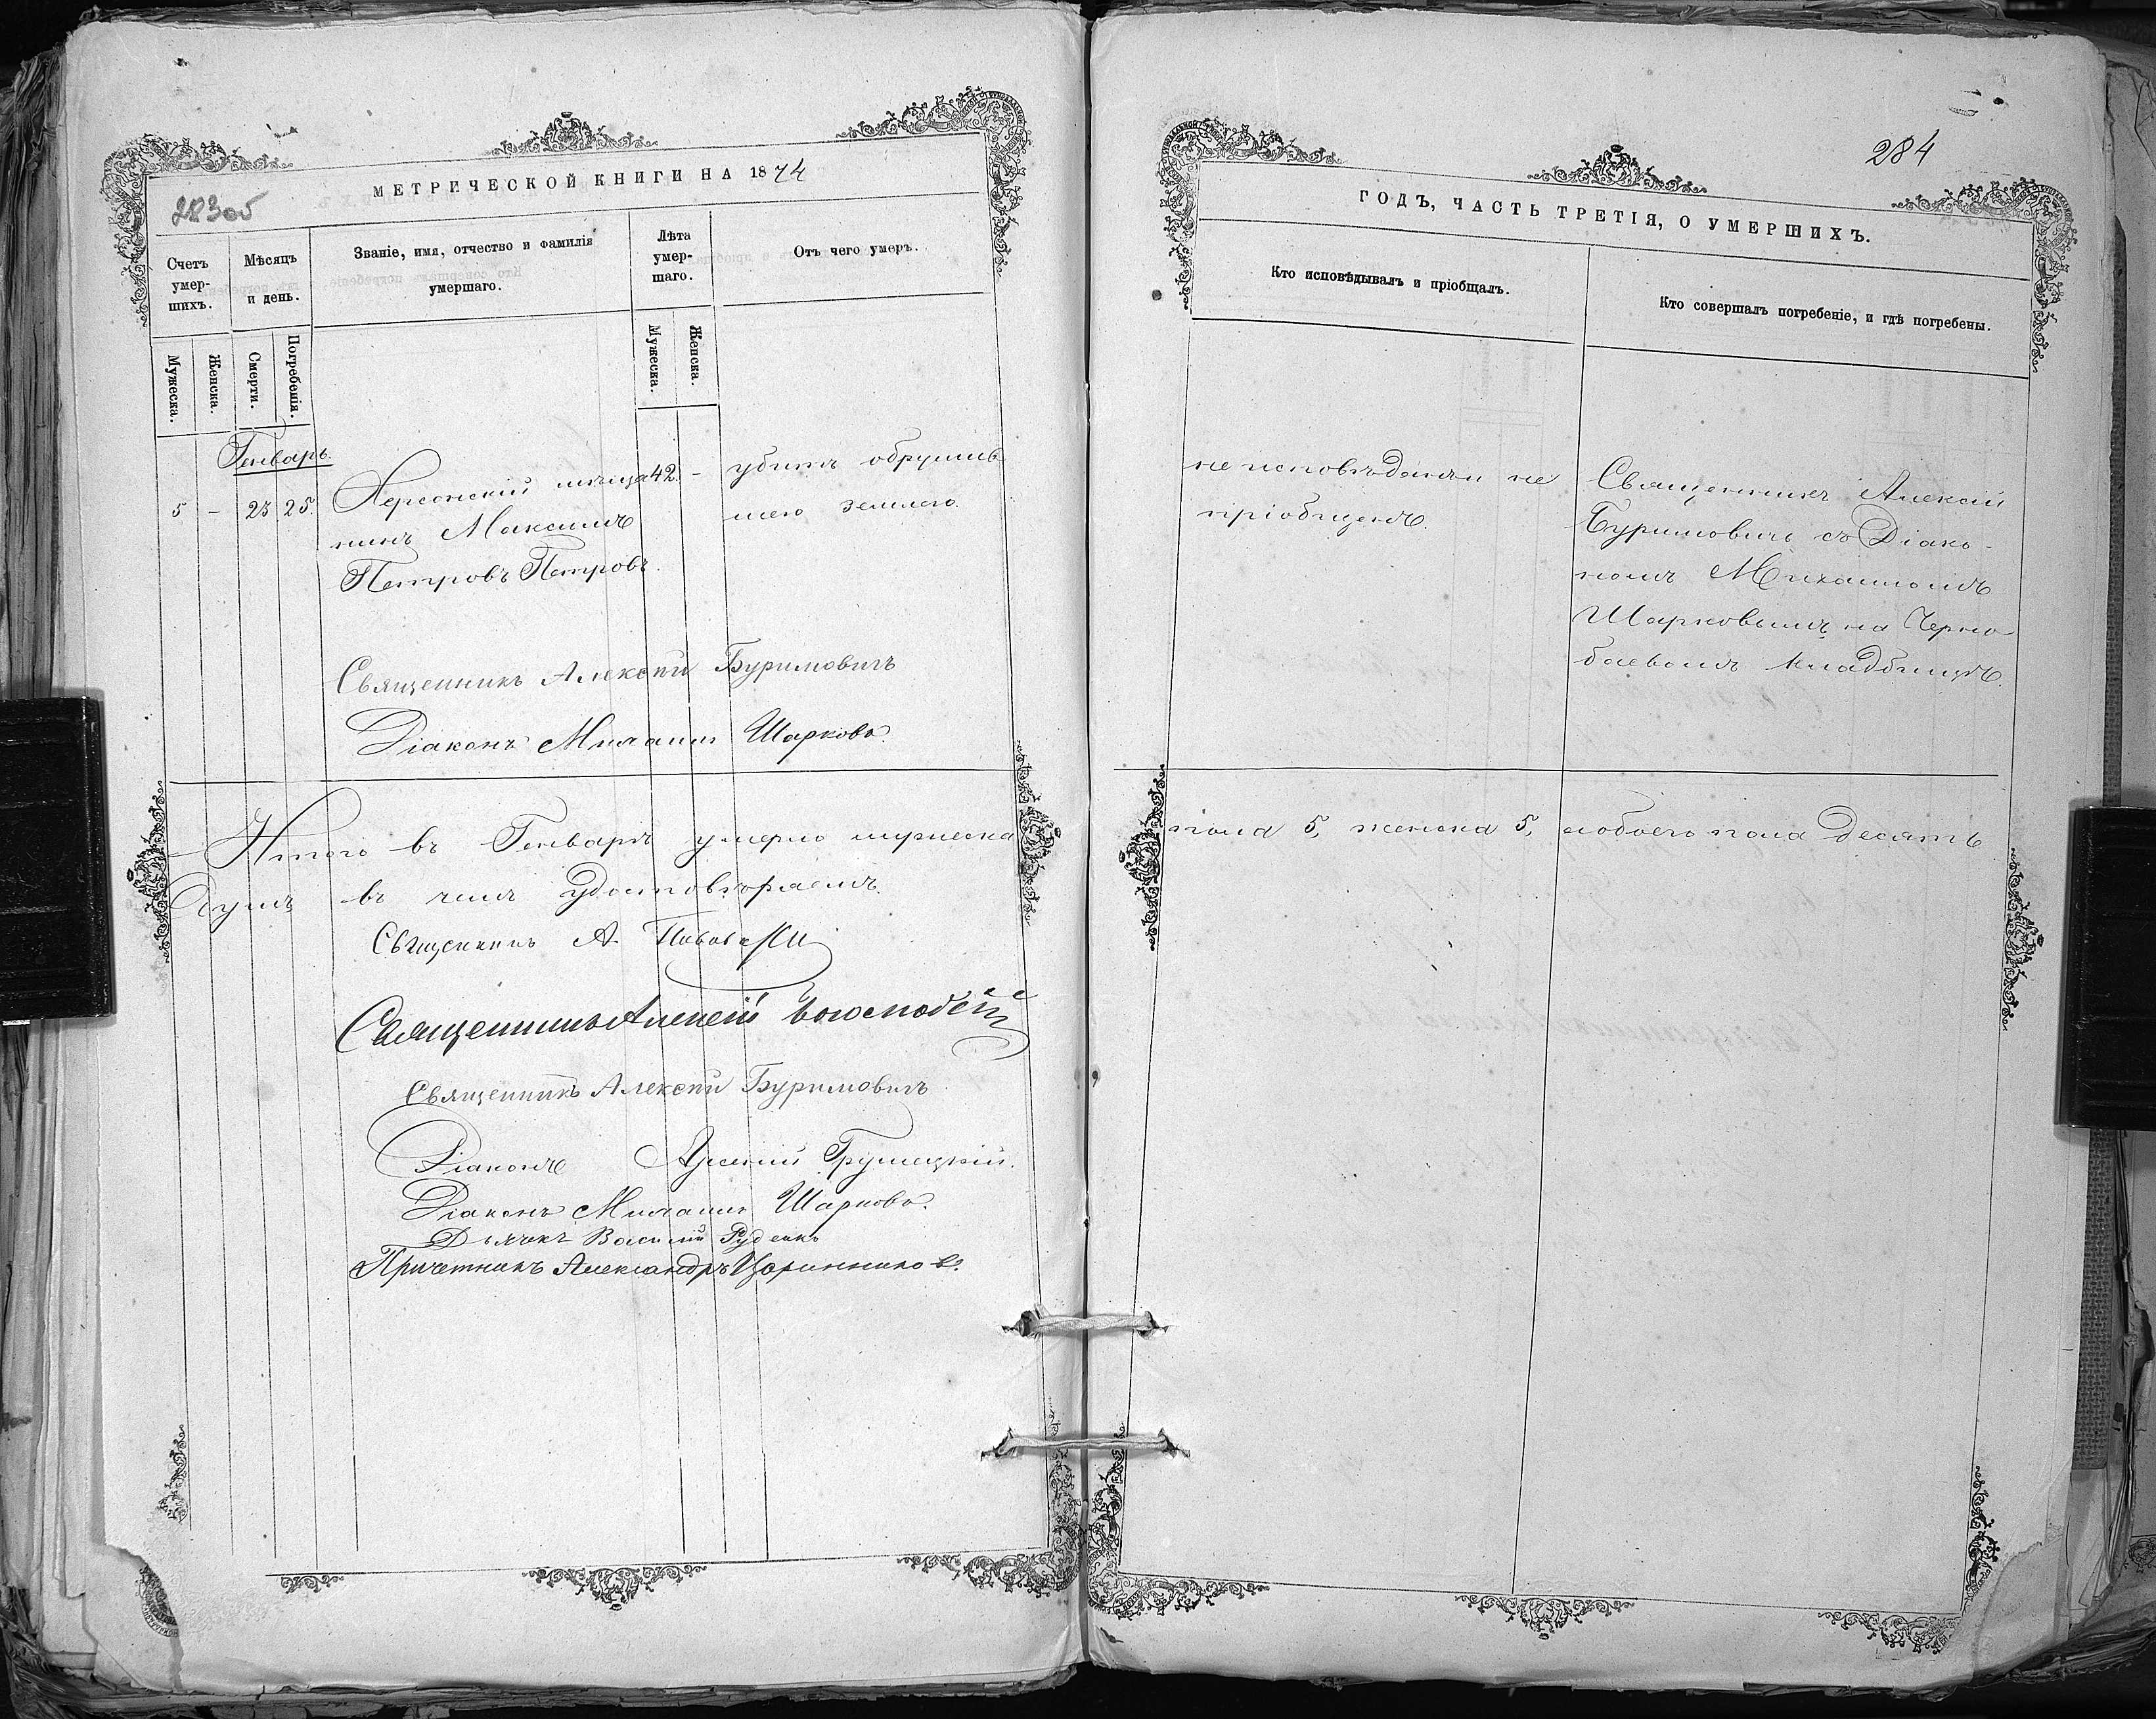 283об
МЕТРИЧЕСКОЙ КНИГИ НА 1874
Счетъ умер-шихъ.
Мѣсяцъ и день.
Званіе, имя, отчество и фамилія умершаго.
Лѣта умер-шаго.
Отъ чего умеръ.
Мужеска.
Женска.
Смерти.
Погребенія.
Мужеска.
Женска.
Генварь
5 - 23 25. Херсонскій мѣща 42. - убитъ обрушив
нинъ Максимъ шею землею.
Петровъ Петровъ.
Священникъ Алексѣй Буримовичъ
Діаконъ Михаилъ Шарковъ
Итого въ Генварѣ умерло мужеска
душъ въ чемъ удостовѣряемъ.
Священникъ А.
Священникъ Алексій
Священникъ Алексѣй Буримовичъ
Діаконъ Арсеній Грушецкій.
Діаконъ Михаилъ Шарковъ.
Дьячекъ Василій Руденко
Причетникъ Александръ
284
ГОДЪ, ЧАСТЬ ТРЕТІЯ, О УМЕРШИХЪ.
Кто исповѣдывалъ и пріобщалъ.
Кто совершалъ погребеніе, и гдѣ погребены.
не исповѣданъ и не
пріобщенъ.
Священникъ Алексій
Буримовичъ съ Діако-
номъ Михаиломъ
Шарковымъ на Черно
баевомъ кладбищѣ.
пола 5, женска 5, обоего пола десять